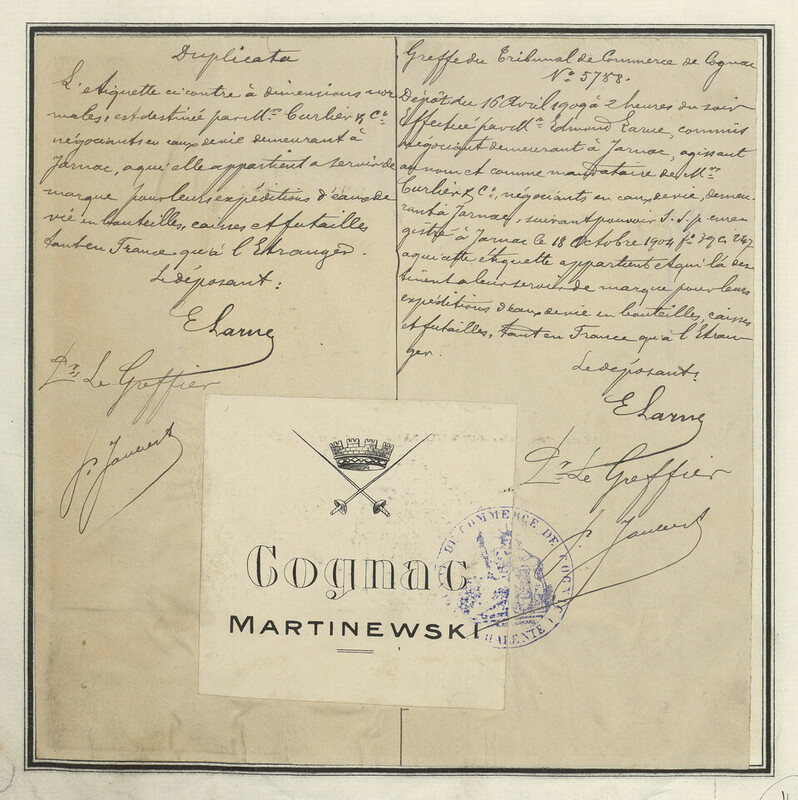 Duplicata
L'etiquette ci contre à dimensions nor
males, est destinée par Mrs Curlier & Co
négociants en eaux devie demeurant à
Jarnac, a qui elle appartient a servir de
marque pour leurs expéditions d'eaux de
vie en bouteilles, caisses et futailles
tant en France qu'à l'Etranger.
Le déposant:
E Larue
Pr Le Greffier
Greffe du Tribunal de Commerce de Cognac
No 5758.
Dépôt du 16 Avril 1909 à 2 heures du soir
Effectué par Mr Edmond Larue, commis
négociant demeurant à Jarnac, agissant
au nom et comme mandataire de Mrs
Curlier & Co, négociants en eaux devie, demeu
rant à Jarnac, suivant pouvoir S.S.p enre
gistré à Jarnac le 18 Octobre 1904 fo 39 c
a qui cette étiquette appartient et qui la des
tinent a leur servir de marque pour leurs
expéditions d'eaux devie en bouteilles, caisses
et futailles, tant en France qu'à l'Etran-
ger.
Le déposant:
E Larue
Pr Le Greffier
Cognac
MARTINEWSKI
DE COMMERCE DE COGNAC
CHARENTE